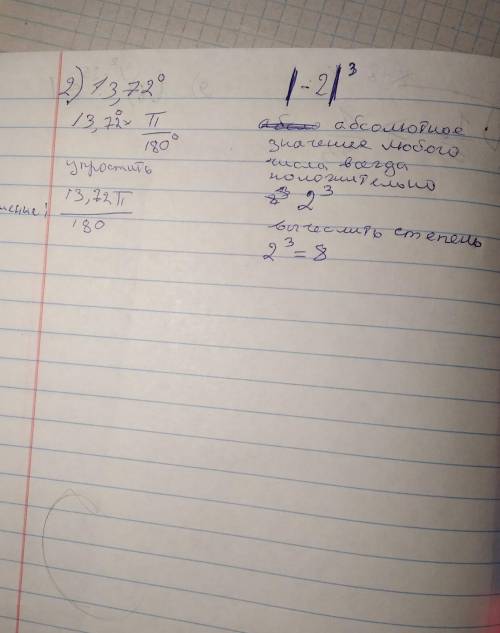 2) 13,72°
13,72° × π
180°
упростить
13,72π
180
|-2|³
абсолютное
значение любого
числа всегда
положительно
2³
вычеслить степень
2³ = 8